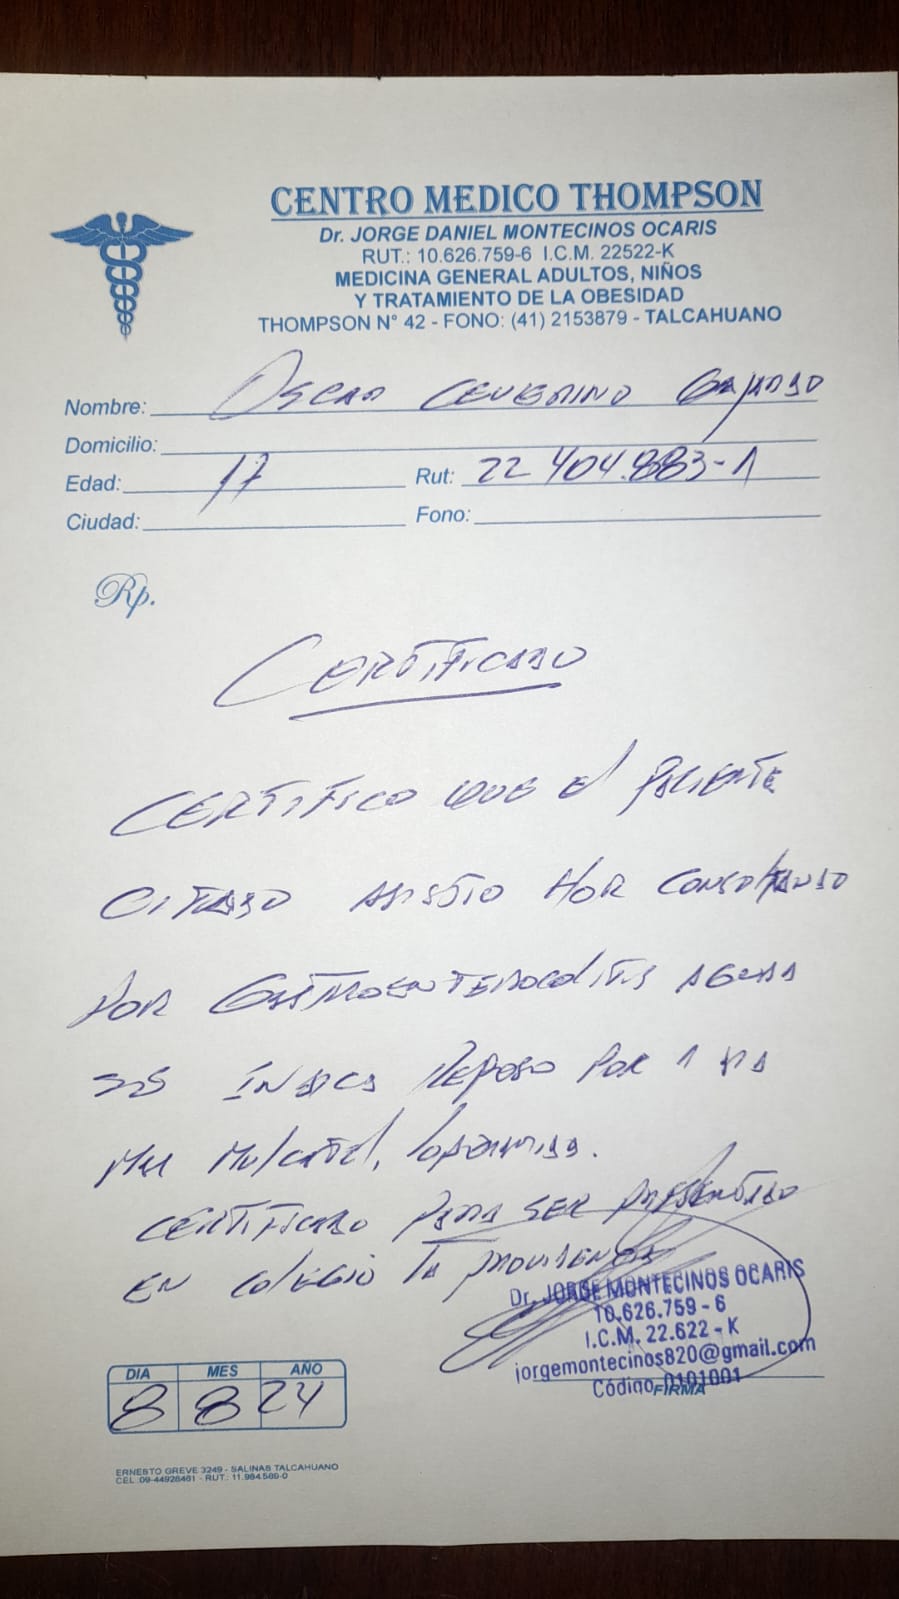 CENTRO MEDICO THOMPSON
Dr. JORGE DANIEL MONTECINOS OCARIS
RUT.: 10.626.759-6 I.C.M. 22522-K
MEDICINA GENERAL ADULTOS, NIÑOS
Y TRATAMIENTO DE LA OBESIDAD
THOMPSON N° 42 - FONO: (41) 2153879 - TALCAHUANO
Nombre: OSCAR CEVERINO
Domicilio:
Edad: 17 Rut: 22 404.883-1
Ciudad: Fono:
Rp.
CERTIFICADO
CERTIFICO QUE El PACIENTE
CITADO ASISTIO HOY CONSULTANDO
POR GASTROENTEROCOLITIS AGUDA
SE INDICA REPOSO POR 1 DIA
CERTIFICADO PARA SER PRESENTADO
EN COLEGIO La PROVIDENCIA
Dr. JORGE MONTECINOS OCARIS
10.626.759 - 6
I.C.M. 22.622 - K
jorgemontecinos820@gmail.com
Código 0101001
FIRMA
DIA MES AÑO
8 8 24
ERNESTO GREVE 3249 - SALINAS TALCAHUANO
CEL.:09-44928461 - RUT.: 11.984.569-0